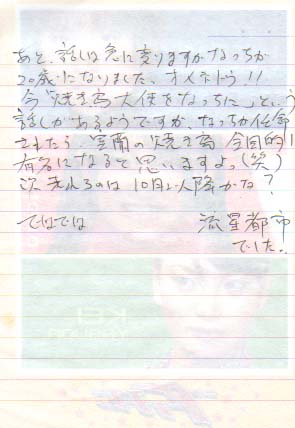 あと、話しは急に変りますがなっちが
20歳になりました、オメデトウ!!
今「焼き鳥大使をなっちに」という
話しがあるようですが、なっちが任命
されたら、室蘭の焼き鳥、全国的に
有名になると思いますよっ(笑)
次来れるのは10月以降かな?
ではでは 流星都市
でした。
KEI